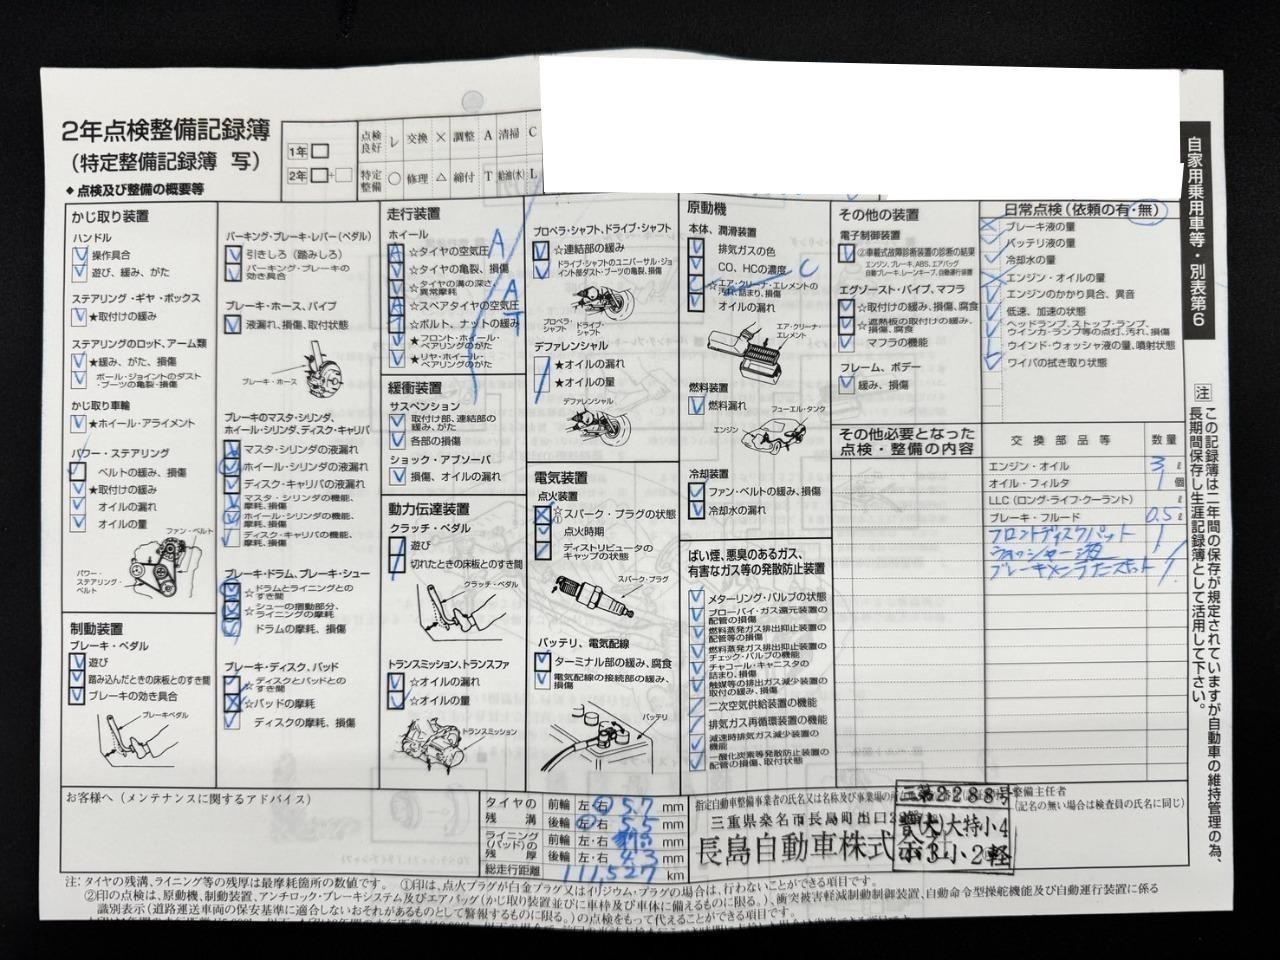 2年点検整備記録簿
(特定整備記録簿 写)
1年
2年
点検良好 レ 交換 × 調整 A 清掃 C
特定整備 ○ 修理 △ 締付 T 給油(水) L
◆点検及び整備の概要等
自家用乗用車等・別表第6
かじ取り装置
ハンドル
操作具合
遊び、緩み、がた
ステアリング・ギヤ・ボックス
★取付けの緩み
ステアリングのロッド、アーム類
★緩み、がた、損傷
ボール・ジョイントのダスト・ブーツの亀裂・損傷
かじ取り車輪
★ホイール・アライメント
パワー・ステアリング
ベルトの緩み、損傷
★取付けの緩み
オイルの漏れ
オイルの量
ファン・ベルト
パワー・ステアリング・ベルト
制動装置
ブレーキ・ペダル
遊び
踏み込んだときの床板とのすき間
ブレーキの効き具合
ブレーキペダル
パーキング・ブレーキ・レバー(ペダル)
引きしろ(踏みしろ)
パーキング・ブレーキの効き具合
ブレーキ・ホース、パイプ
液漏れ、損傷、取付状態
ブレーキ・ホース
ブレーキのマスタ・シリンダ、ホイール・シリンダ、ディスク・キャリパ
マスタ・シリンダの液漏れ
ホイール・シリンダの液漏れ
ディスク・キャリパの液漏れ
マスタ・シリンダの機能、摩耗、損傷
ホイール・シリンダの機能、摩耗、損傷
ディスク・キャリパの機能、摩耗、損傷
ブレーキ・ドラム、ブレーキ・シュー
☆ドラムとライニングとのすき間
☆シューの摺動部分、ライニングの摩耗
ドラムの摩耗、損傷
ブレーキ・ディスク、パッド
☆ディスクとパッドとのすき間
☆パッドの摩耗
ディスクの摩耗、損傷
走行装置
ホイール
☆タイヤの空気圧 A
☆タイヤの亀裂、損傷
☆タイヤの溝の深さ、異常摩耗
☆スペアタイヤの空気圧 A
☆ボルト、ナットの緩み T
★フロント・ホイール・ベアリングのがた
★リヤ・ホイール・ベアリングのがた
緩衝装置
サスペンション
取付け部、連結部の緩み、がた
各部の損傷
ショック・アブソーバ
損傷、オイルの漏れ
動力伝達装置
クラッチ・ペダル
遊び
切れたときの床板とのすき間
クラッチ・ペダル
トランスミッション、トランスファ
☆オイルの漏れ
☆オイルの量
トランスミッション
プロペラ・シャフト、ドライブ・シャフト
☆連結部の緩み
ドライブ・シャフトのユニバーサル・ジョイント部ダスト・ブーツの亀裂、損傷
プロペラ・シャフト
ドライブ・シャフト
デファレンシャル
★オイルの漏れ
★オイルの量
デファレンシャル
電気装置
点火装置
☆① スパーク・プラグの状態
点火時期
ディストリビュータのキャップの状態
スパーク・プラグ
バッテリ、電気配線
ターミナル部の緩み、腐食
電気配線の接続部の緩み、損傷
バッテリ
原動機
本体、潤滑装置
排気ガスの色
CO、HCの濃度
☆エア・クリーナ・エレメントの汚れ、詰まり、損傷 C
オイルの漏れ
エア・クリーナ・エレメント
燃料装置
燃料漏れ
フューエル・タンク
エンジン
冷却装置
ファン・ベルトの緩み、損傷
冷却水の漏れ
ばい煙、悪臭のあるガス、有害なガス等の発散防止装置
メターリング・バルブの状態
ブローバイ・ガス還元装置の配管の損傷
燃料蒸発ガス排出抑止装置の配管等の損傷
燃料蒸発ガス排出抑止装置のチェック・バルブの機能
チャコール・キャニスタの詰まり、損傷
触媒等の排出ガス減少装置の取付の緩み、損傷
二次空気供給装置の機能
排気ガス再循環装置の機能
減速時排気ガス減少装置の機能
一酸化炭素等発散防止装置の配管の損傷、取付状態
その他の装置
電子制御装置
②車載式故障診断装置の診断の結果
エンジン、ブレーキ、ABS、エアバッグ
自動ブレーキ、レーンキープ、自動運行装置
エグゾースト・パイプ、マフラ
☆取付けの緩み、損傷、腐食
☆遮熱板の取付けの緩み、損傷、腐食
マフラの機能
フレーム、ボデー
緩み、損傷
その他必要となった
点検・整備の内容
日常点検(依頼の有・無)
ブレーキ液の量
バッテリ液の量
冷却水の量
エンジン・オイルの量
エンジンのかかり具合、異音
低速、加速の状態
ヘッドランプ、ストップ・ランプ、ウインカ・ランプ等の点灯、汚れ、損傷
ウインド・ウォッシャ液の量、噴射状態
ワイパの拭き取り状態
交換部品等 数量
エンジン・オイル 3 ℓ
オイル・フィルタ 1 個
LLC(ロング・ライフ・クーラント) ℓ
ブレーキ・フルード 0.5 ℓ
フロントディスクパット 1
ウォッシャー液 1
注
この記録簿は二年間の保存が規定されていますが自動車の維持管理の為、
長期間保存し生涯記録簿として活用して下さい。
お客様へ(メンテナンスに関するアドバイス)
タイヤの残溝 前輪 左・右 5.7 mm
後輪 左・右 5.5 mm
ライニング(パッド)の残厚 前輪 左・右 mm
後輪 左・右 4.3 mm
総走行距離 111,527 km
指定自動車整備事業者の氏名又は名称及び事業場の所在
三重県桑名市長島町出口
長島自動車株式会社
三第2288号
普(大)大特小4
小3小2軽
整備主任者
(記名の無い場合は検査員の氏名に同じ)
注:タイヤの残溝、ライニング等の残厚は最摩耗箇所の数値です。 ①印は、点火プラグが白金プラグ又はイリジウム・プラグの場合は、行わないことができる項目です。
②印の点検は、原動機、制動装置、アンチロック・ブレーキシステム及びエアバッグ(かじ取り装置並びに車枠及び車体に備えるものに限る。)、衝突被害軽減制動制御装置、自動命令型操舵機能及び自動運行装置に係る
識別表示(道路運送車両の保安基準に適合しないおそれがあるものとして警報するものに限る。)の点検をもって代えることができる項目です。